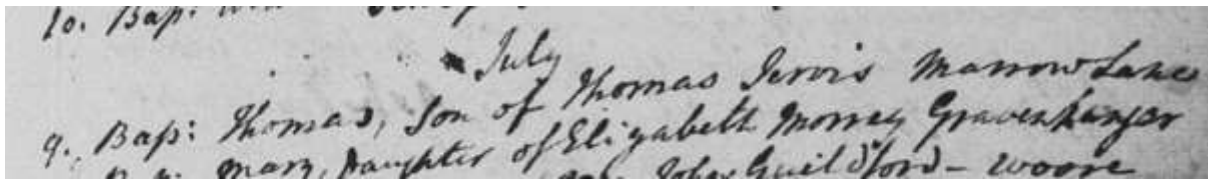 10. Bap:
July
9. Bap: Thomas, Son of Thomas Jervis Marrow Lane
Mary, Daughter of Elizabeth Morrey Gravenhanger
John Guildford - Woore